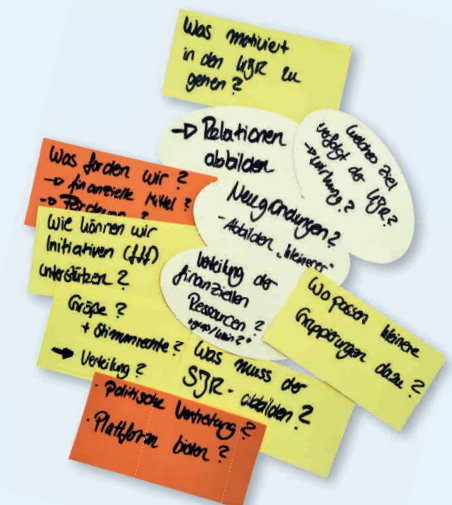 Was motiviert
in den KJR zu
gehen?
→ Relationen
abbilden
Welches Ziel
verfolgt der KJR?
→ Wirkung?
Was fordern wir?
→ finanzielle Mittel?
→ Förderung?
Neugründungen?
- Abbilden „kleinerer“
Wie können wir
Initiativen (fff)
unterstützen?
Verteilung der
finanziellen
Ressourcen?
Wo passen kleinere
Gruppierungen dazu?
Größe?
+ Stimmrechte?
→ Verteilung?
Was muss der
SJR - abbilden?
· Politische Vertretung?
· Plattform bieten?